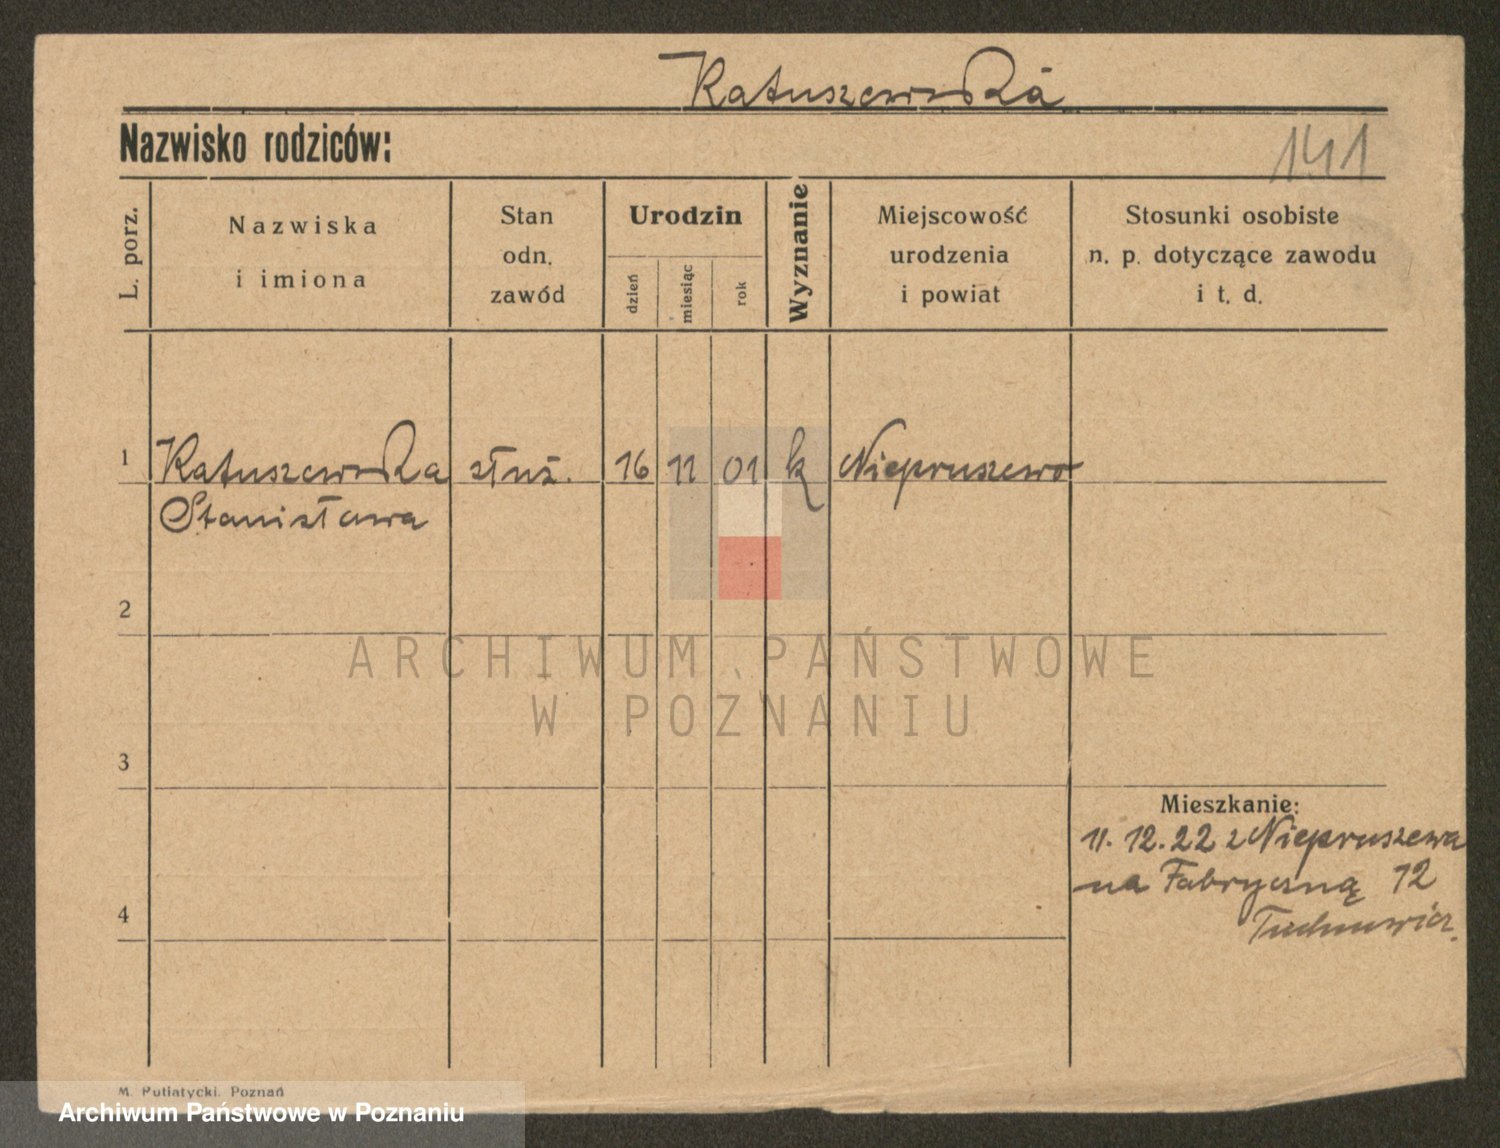 Katuszewska
Nazwisko rodziców:
141
L. porz.
Nazwiska
i imiona
Stan
odn.
zawód
Urodzin
dzień
miesiąc
rok
Wyznanie
Miejscowość
urodzenia
i powiat
Stosunki osobiste
n. p. dotyczące zawodu
i t. d.
1 Katuszewska służ. 16 11 01 k Niepruszewo
Stanisława
2
ARCHIWUM PAŃSTWOWE
W POZNANIU
3
Mieszkanie:
11. 12. 22 z Niepruszewa
na Fabryczną 12
4
M. Putiatycki. Poznań
Archiwum Państwowe w Poznaniu